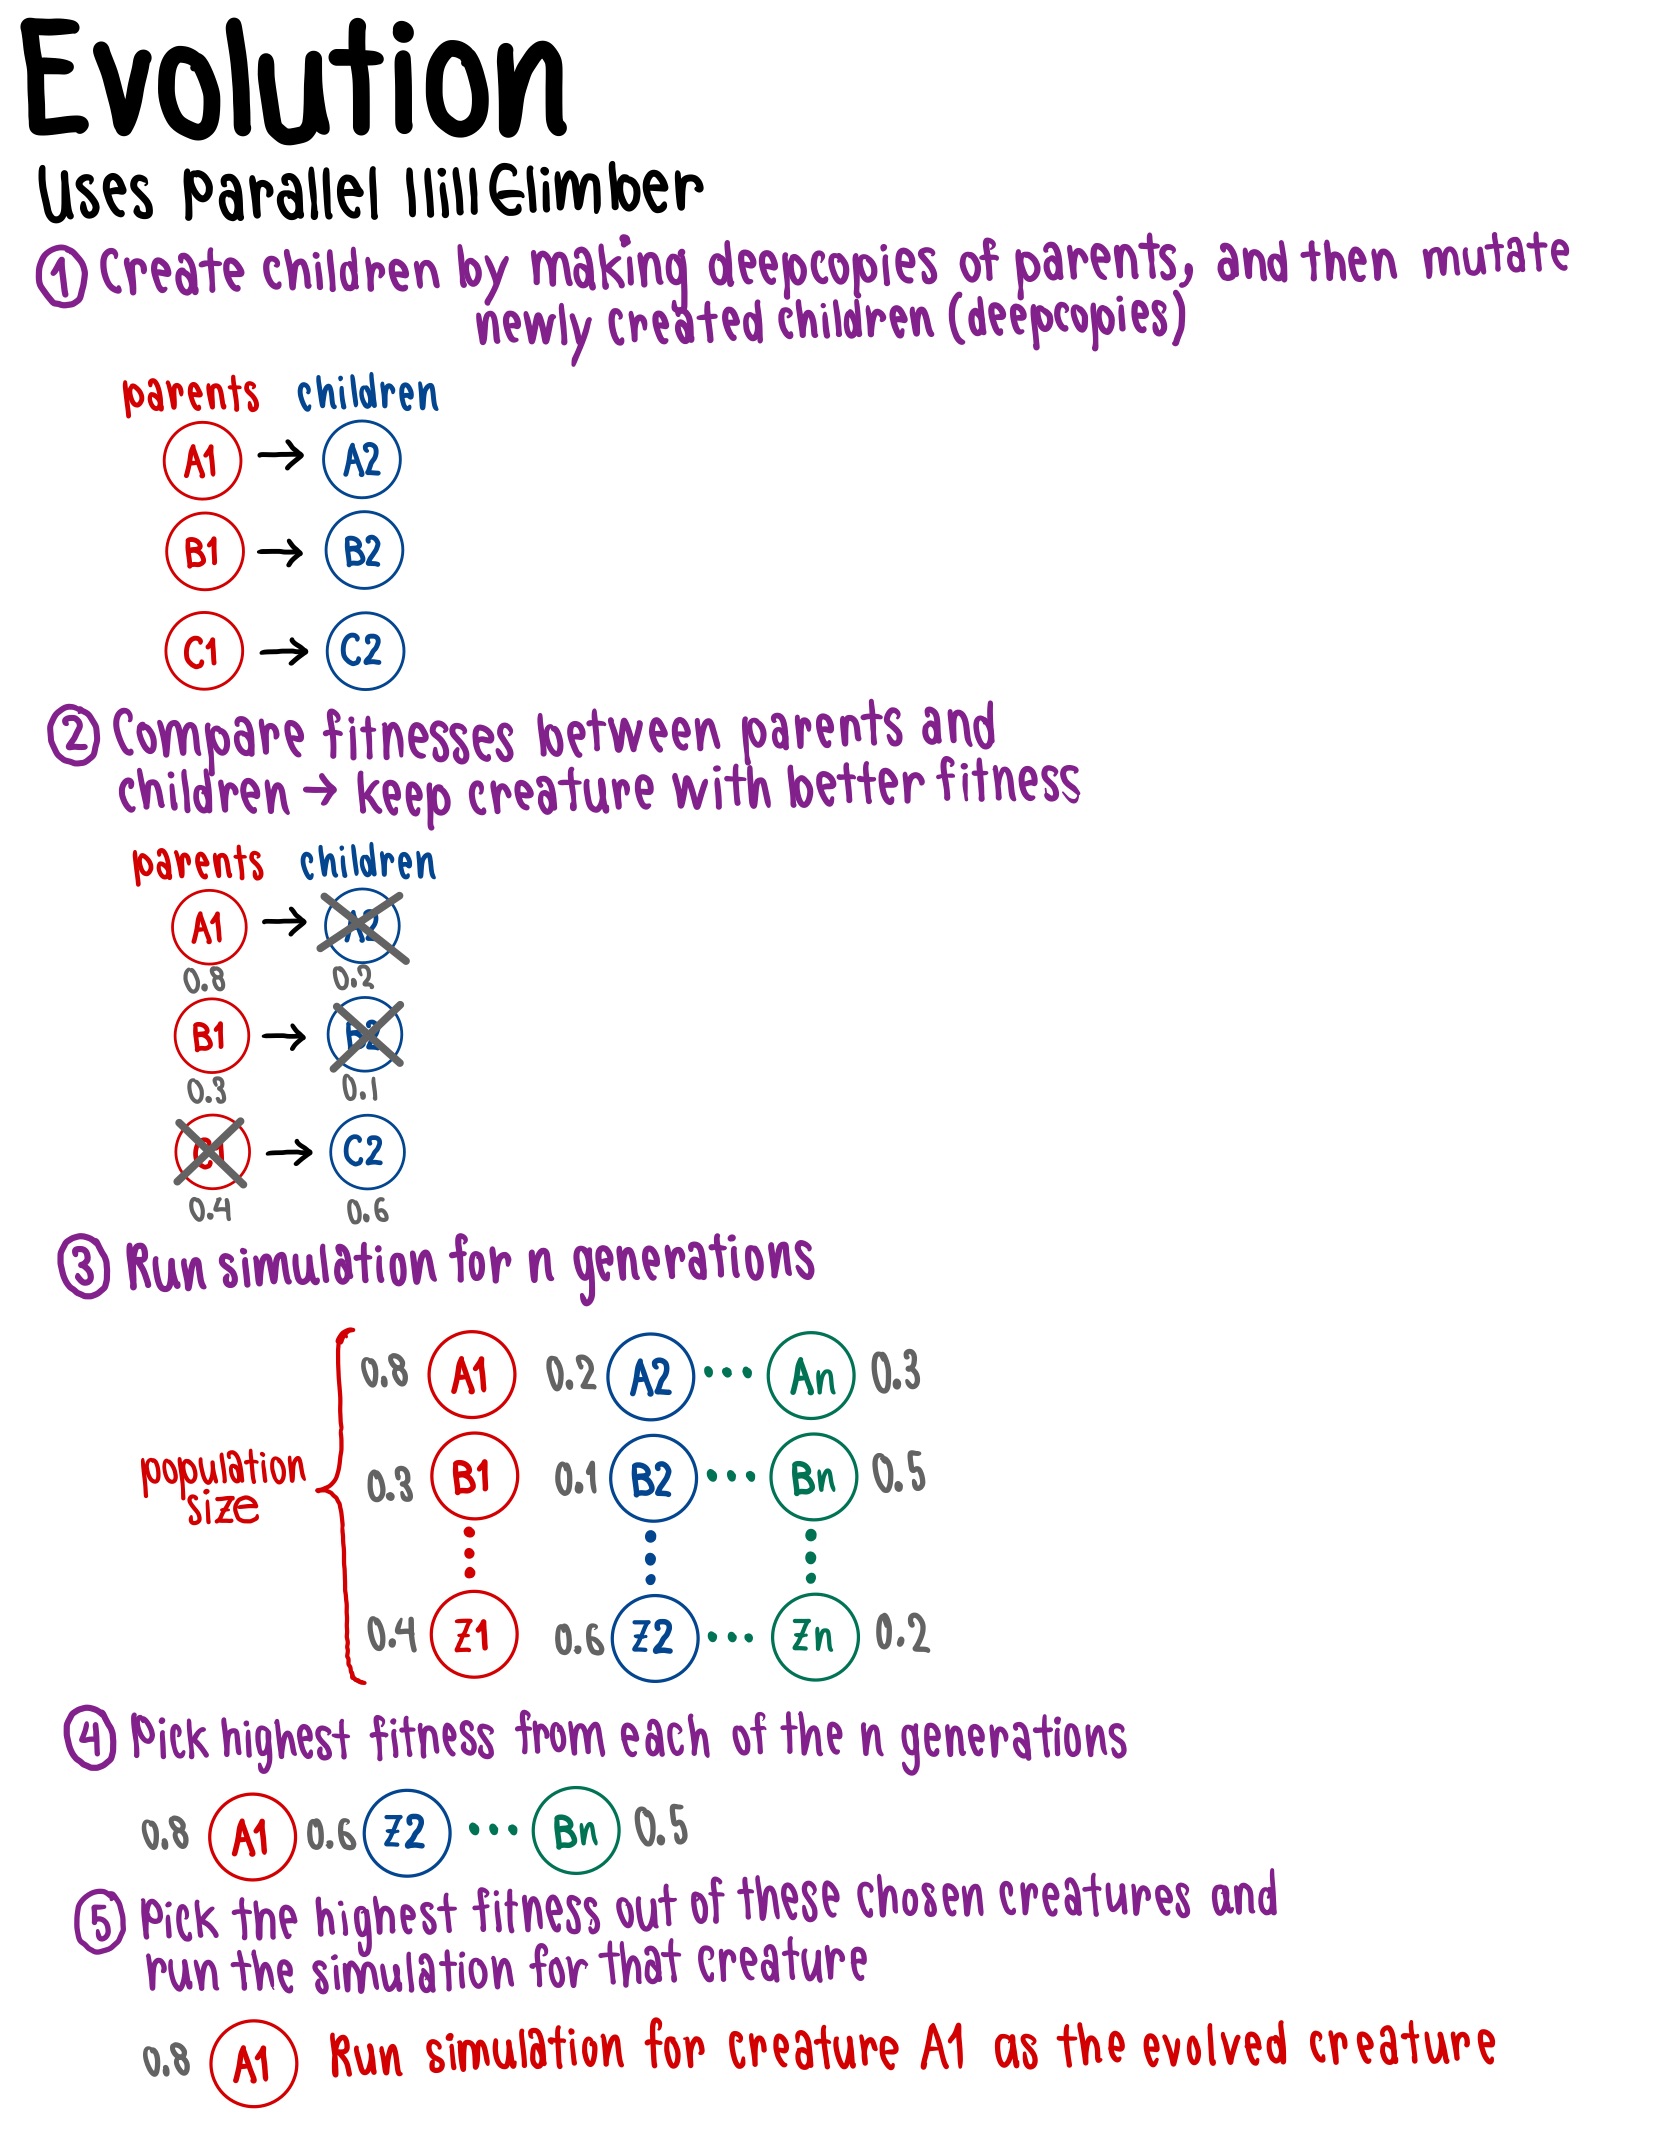 Evolution
Uses Parallel HillClimber
① Create children by making deepcopies of parents, and then mutate
newly created children (deepcopies)
parents children
A1 → A2
B1 → B2
C1 → C2
② Compare fitnesses between parents and
children → keep creature with better fitness
parents children
A1 → A2
0.8 0.2
B1 → B2
0.3 0.1
C1 → C2
0.4 0.6
③ Run simulation for n generations
0.8 A1 0.2 A2 ... An 0.3
population
size
0.3 B1 0.1 B2 ... Bn 0.5
0.4 Z1 0.6 Z2 ... Zn 0.2
④ Pick highest fitness from each of the n generations
0.8 A1 0.6 Z2 ... Bn 0.5
⑤ Pick the highest fitness out of these chosen creatures and
run the simulation for that creature
0.8 A1 Run simulation for creature A1 as the evolved creature